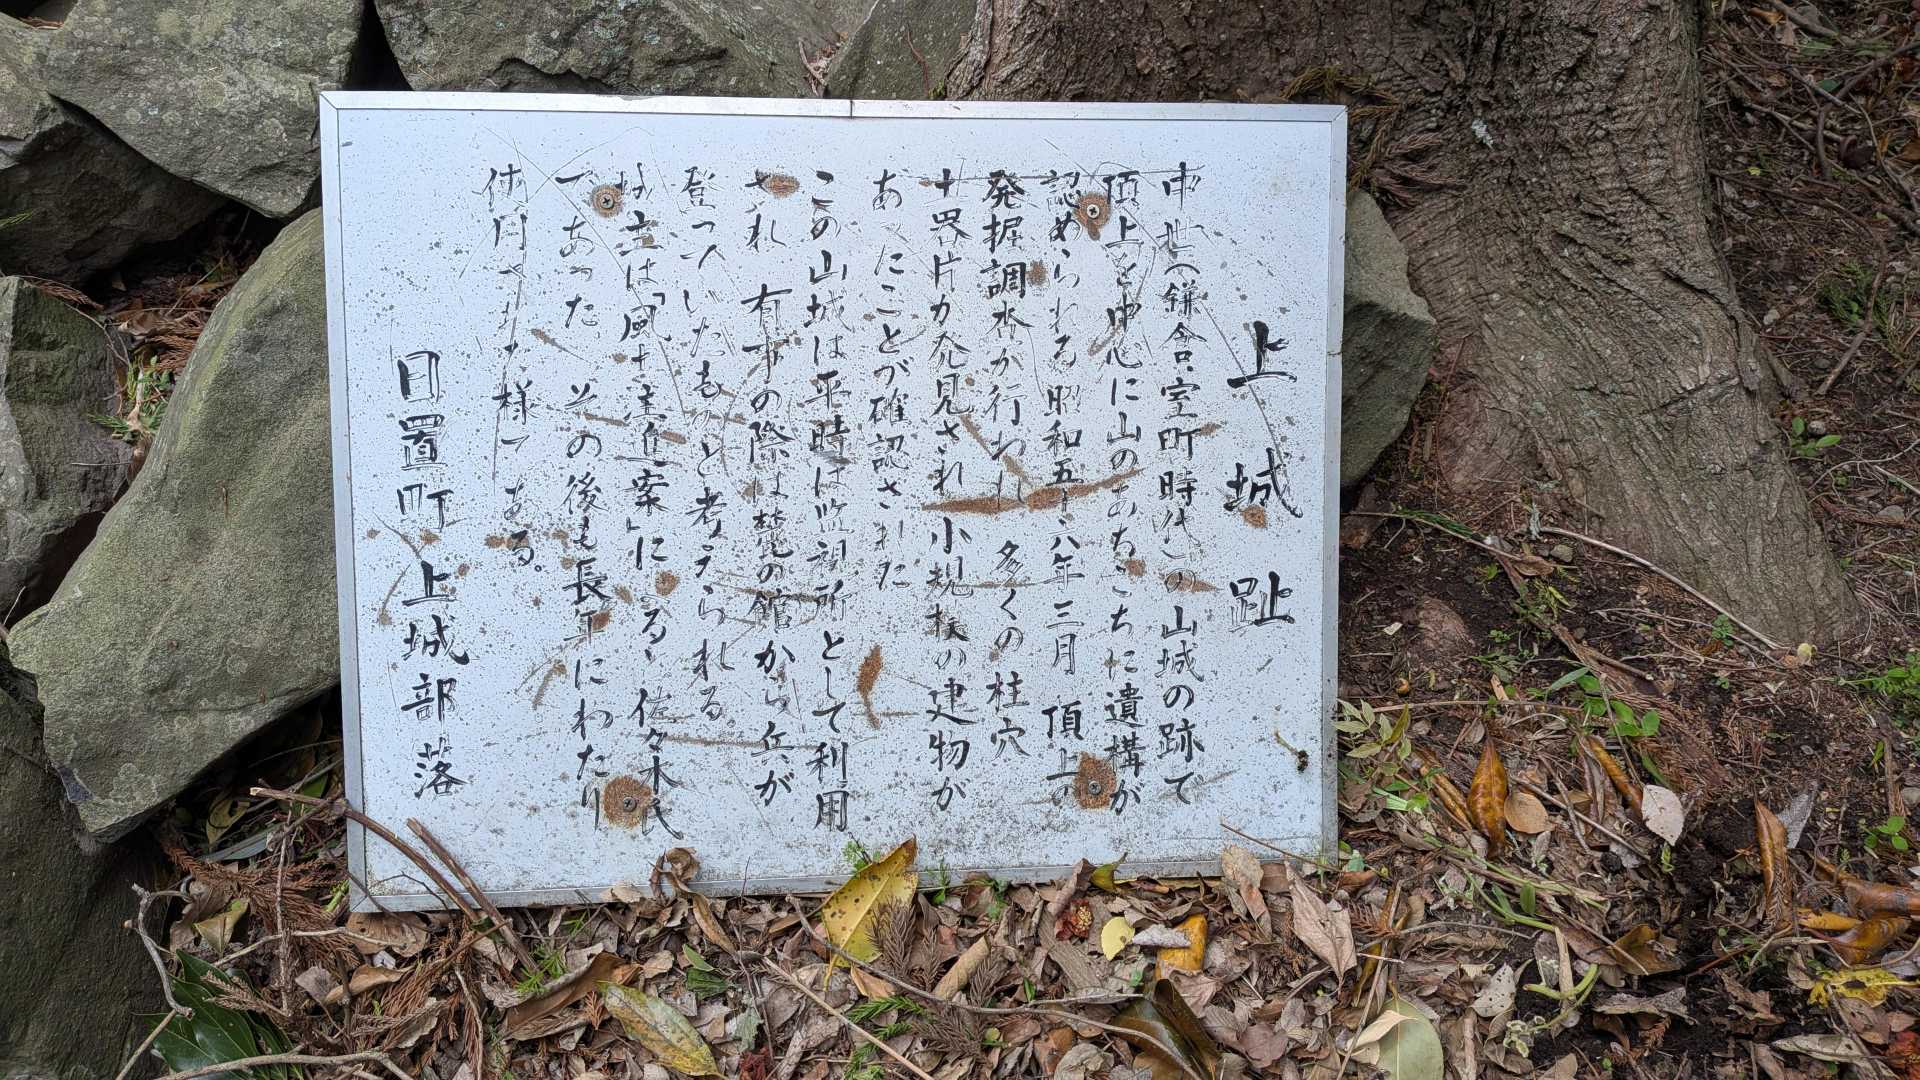 上城趾
中世(鎌倉・室町時代)の山城の跡で
頂上を中心に山のあちこちに遺構が
認められる 昭和五十八年三月 頂上の
発掘調査が行われ 多くの柱穴
土器片が発見され 小規模の建物が
あったことが確認された
この山城は平時は監視所として利用
され 有事の際は麓の館から兵が
登っていたものと考えられる。
城主は「風土進案」による 佐々木氏
であった その後も長年にわたり
使用された様である。
日置町上城部落